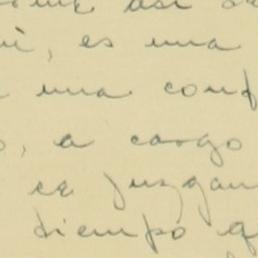 así
, es una
una conf
, a cargo
ce juzgan
tiempo q